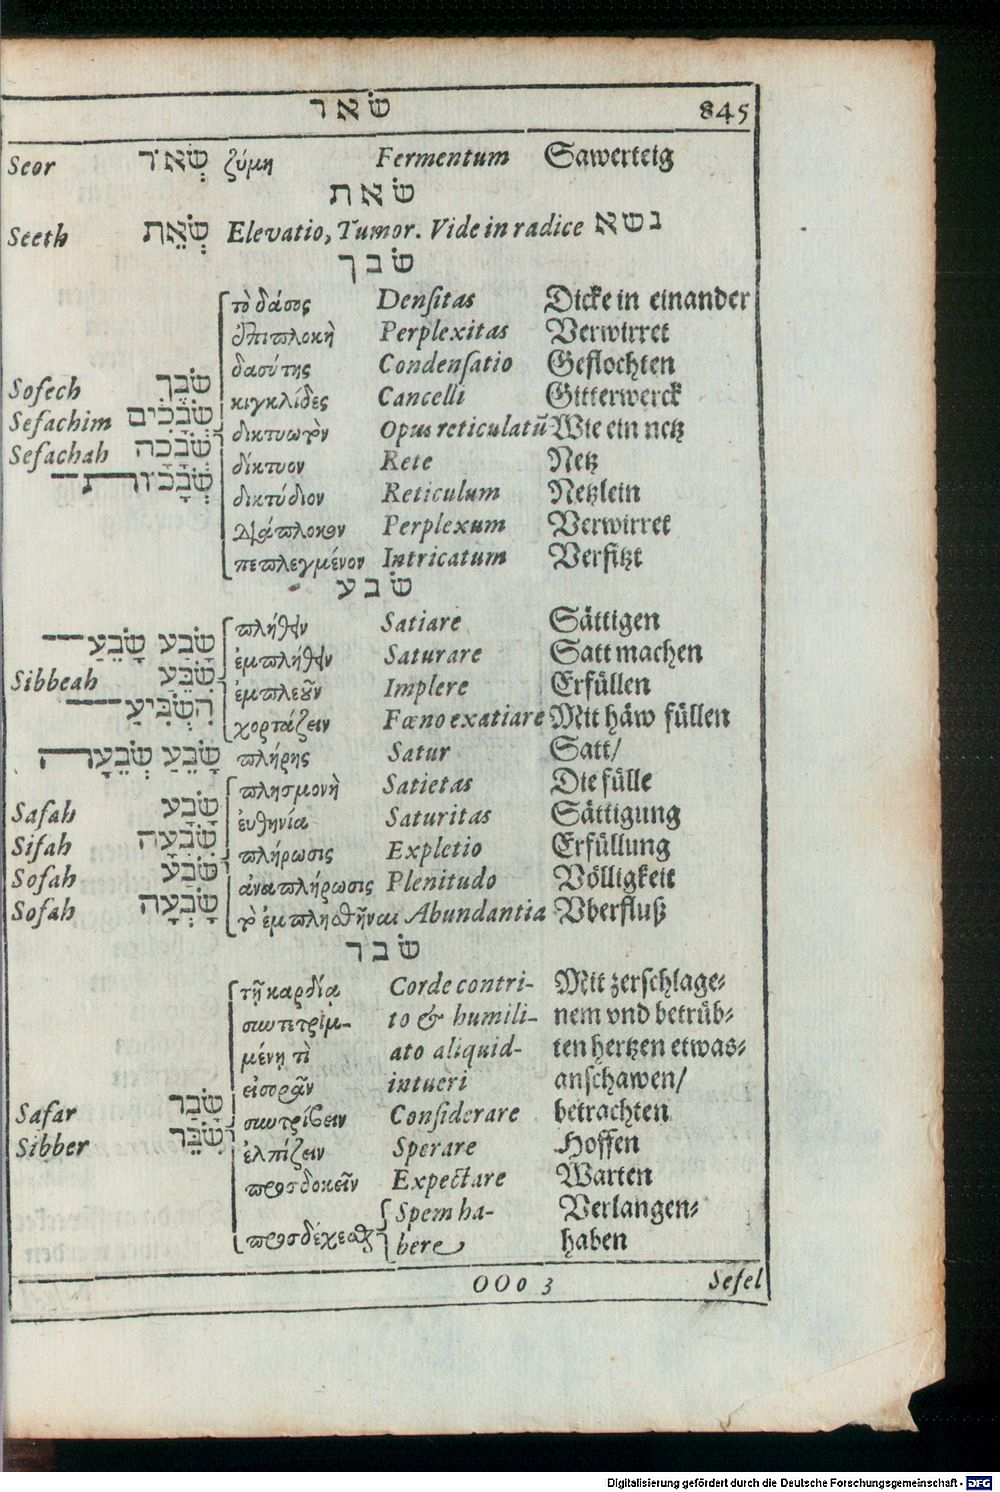 שׂאר 845
Seor שְׂאֹר ζύμη Fermentum Sawerteig
שׂאת
Seeth שְׂאֵת Elevatio, Tumor. Vide in radice נשא
שׂבך
τὸ δάσος Densitas Dicke in einander
ἐπιπλοκὴ Perplexitas Verwirret
δασύτης Condensatio Geflochten
Sofech שֹׂבֶךְ κιγκλίδες Cancelli Gitterwerck
Sefachim שְׂבָכִים δικτυωτὸν Opus reticulatū Wie ein netz
Sefachah שְׂבָכָה δίκτυον Rete Netz
שְׂבָכוֹת δικτύδιον Reticulum Netzlein
διάπλοκον Perplexum Verwirret
πεπλεγμένον Intricatum Verfitzt
שׂבע
πλήθειν Satiare Sättigen
שָׂבַע שָׂבֵעַ ἐμπλήθειν Saturare Satt machen
Sibbeah שִׂבֵּעַ ἐμπλεοῦν Implere Erfüllen
הִשְׂבִּיעַ χορτάζειν Fœno exatiare Mit häw füllen
שָׂבֵעַ שְׂבֵעָה πλήρης Satur Satt/
πλησμονὴ Satietas Die fülle
Safah שָׂבָע εὐθηνία Saturitas Sättigung
Sifah שִׂבְעָה πλήρωσις Expletio Erfüllung
Sofah שֹׂבַע ἀναπλήρωσις Plenitudo Völligkeit
Sofah שָׂבְעָה τὸ ἐμπλησθῆναι Abundantia Vberfluß
שׂבר
τῇ καρδίᾳ Corde contri- Mit zerschlage⸗
συντετριμ- to & humili- nem vnd betrüb⸗
μένῃ τὶ ato aliquid- ten hertzen etwas⸗
εἰσορᾶν intueri anschawen/
Safar שָׂבַר συντρίβειν Considerare betrachten
Sibber שִׂבֵּר ἐλπίζειν Sperare Hoffen
προσδοκεῖν Expectare Warten
Spem ha- Verlangen⸗
προσδέχεσθαι bere haben
OOo 3 Sefel
Digitalisierung gefördert durch die Deutsche Forschungsgemeinschaft - DFG